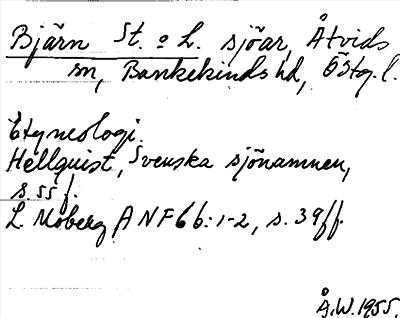 Bjärn St. o L. sjöar, Åtvids
sn, Bankekinds hd, Östg. l.
Etymologi.
Hellquist, Svenska sjönamnen,
s. 55 f.
L. Moberg ANF 66:1-2, s. 39ff.
Å.W. 1955.